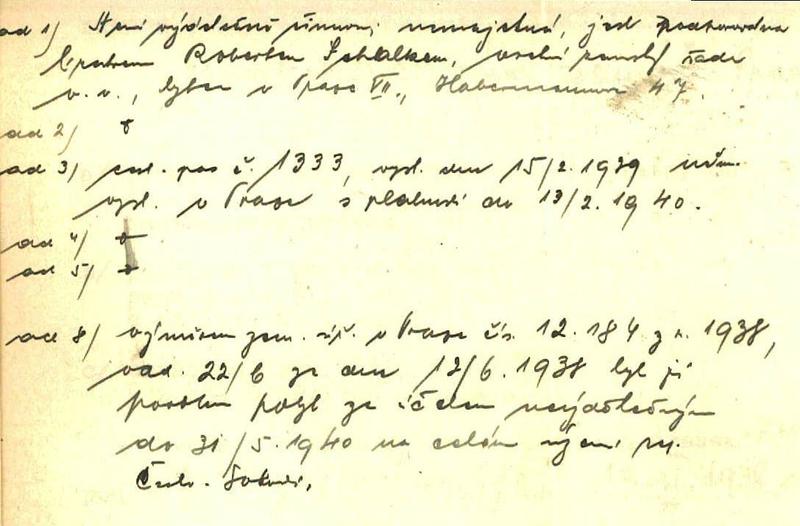 ad 1) Není výdělečně činnou, nemajetná, jest podporována
bratrem Robertem Schalkem, vrchní
v. v., bytem v Praze VII.,
ad 2) 0
ad 3) cest. pas č. 1333, vyst. dne 15/2.1939 něm.
vysl. v Praze s platností do 13/2.1940.
ad 4) 0
ad 5) 0
ad 8) výměrem zem. úř. v Praze čís. 12.184 z r. 1938,
odd. 22/6 ze dne 17/6.1938 byl jí
povolen pobyt za účelem nevýdělečným
do 31/5.1940 na celém území
Česko-Slovenska.